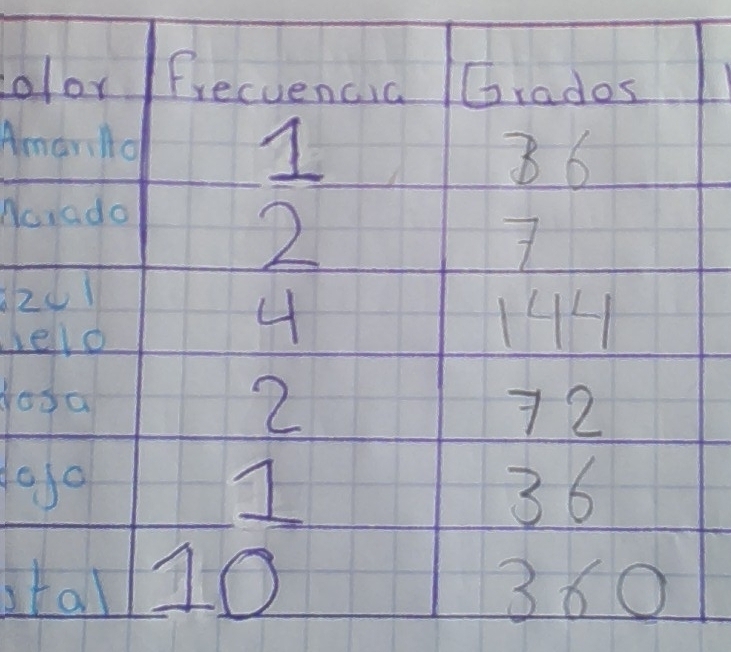 olor Frecuencia Grados
Amarillo 1 36
Morado 2 7
azul 4 144
ielo
Rosa 2 72
Rojo 1 36
otal 10 360